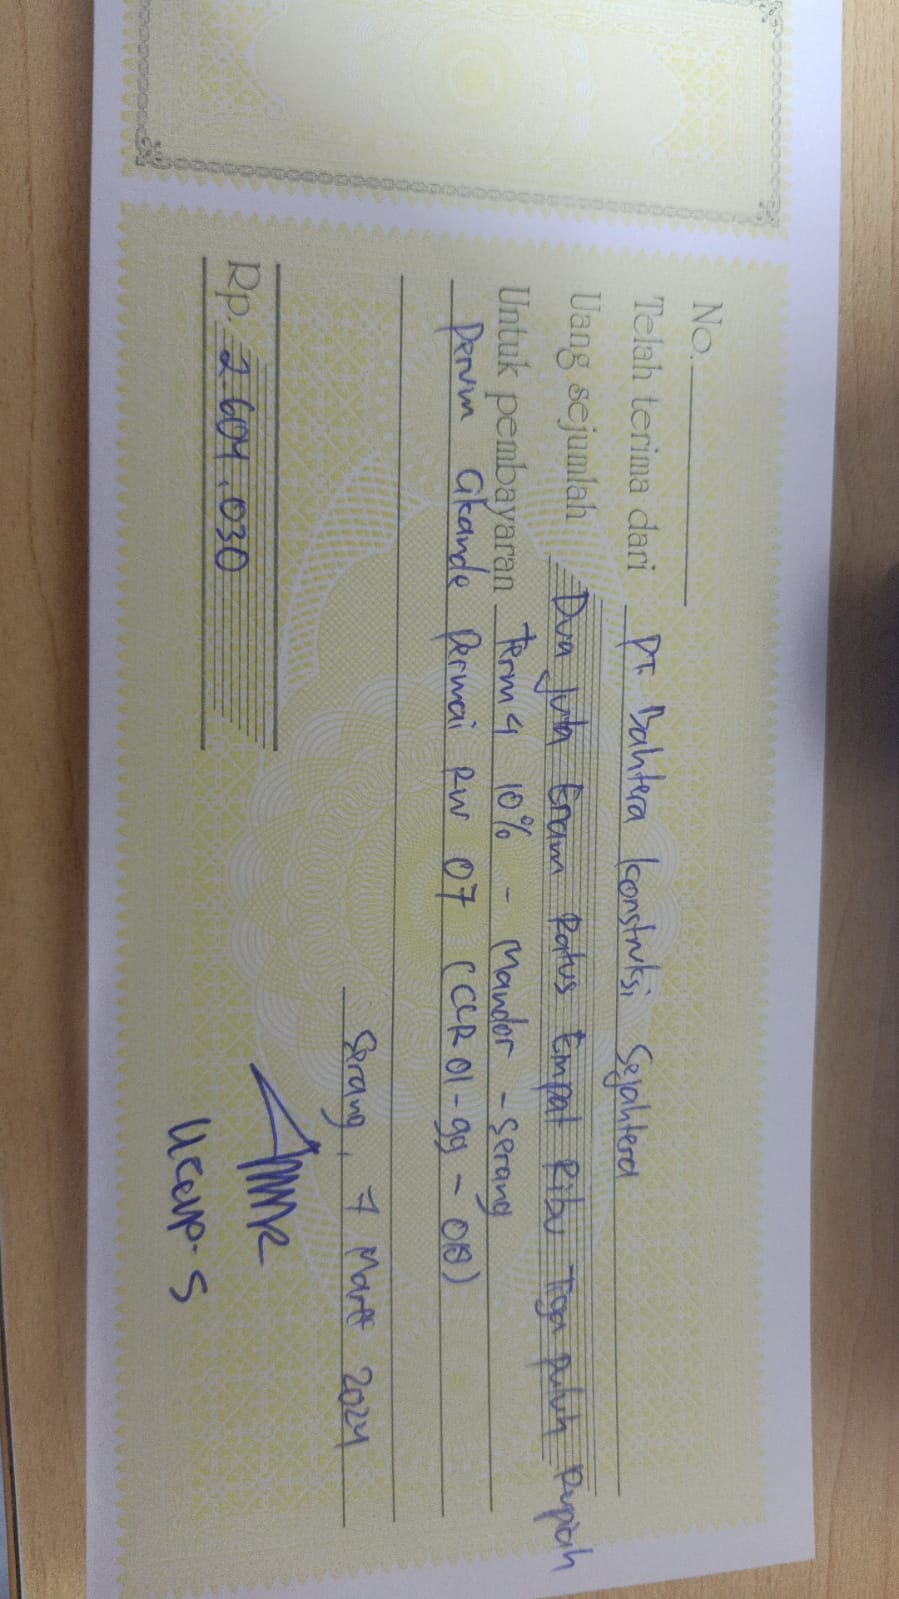 No.
Telah terima dari PT. Bahtera Konstruksi Sejahtera
Uang sejumlah Dua juta Enam Ratus Empat Ribu Tiga puluh Rupiah
Untuk pembayaran Term 4 10% - Mandor - Serang
Perum Cikande Permai RW 07 (CLR01-99-018)
Serang, 7 Maret 2024
Rp. 2.604.030
Ucup. S